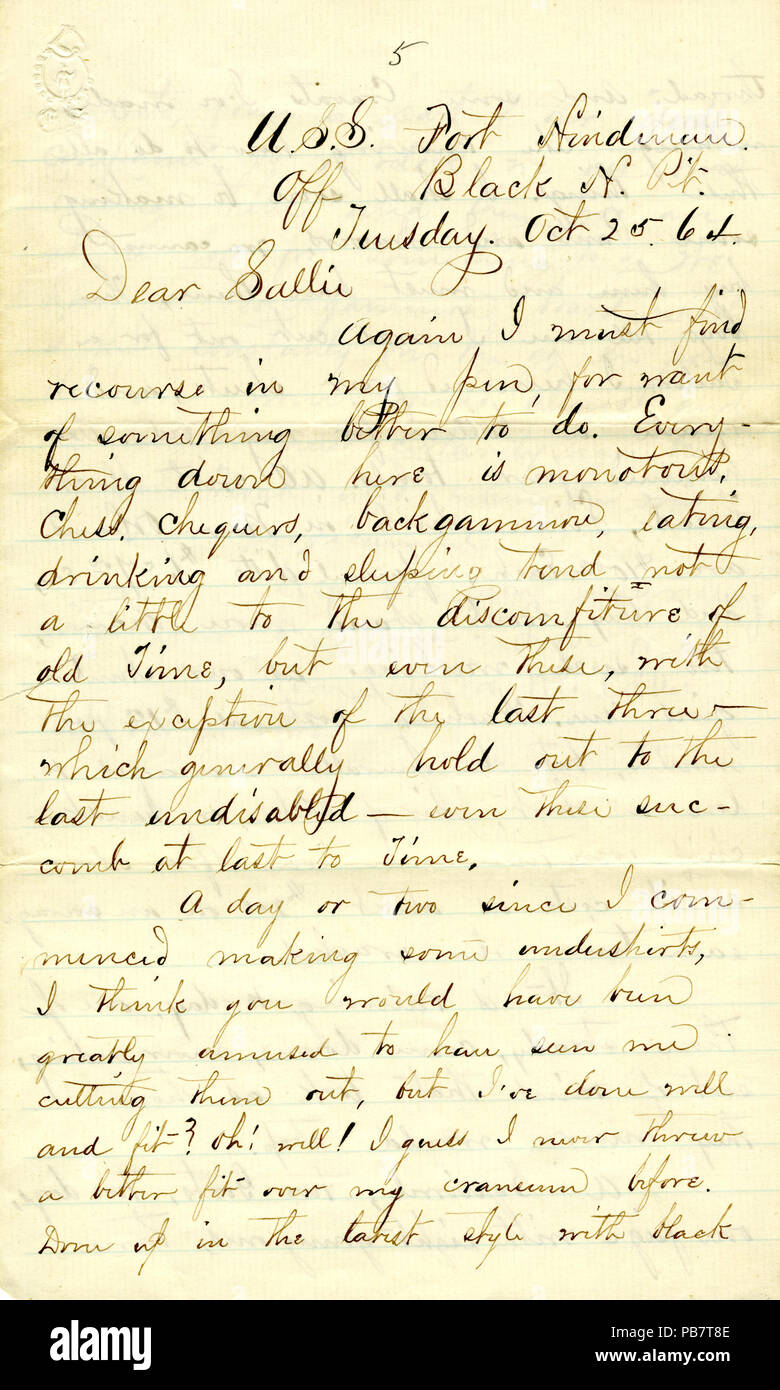 5
U.S.S. Fort Hindman.
Off Black H. Pt.
Tuesday. Oct 25. 64.
Dear Sallie
Again I must find
recourse in my pen, for want
of something better to do. Every-
thing down here is monotous,
Chess, chequers, backgammon, eating,
drinking and sleeping tend not
a little to the discomfiture of
old Time, but even these, with
the exception of the last three—
which generally hold out to the
last undisabled — even these suc-
comb at last to Time.
A day or two since I com-
menced making some undershirts,
I think you would have been
greatly amused to have seen me
cutting them out, but I've done well
and fit? Oh! well! I guess I never threw
a better fit over my craneum before.
Done up in the latest style with black
alamy
Image ID: PB7T8E
www.alamy.com